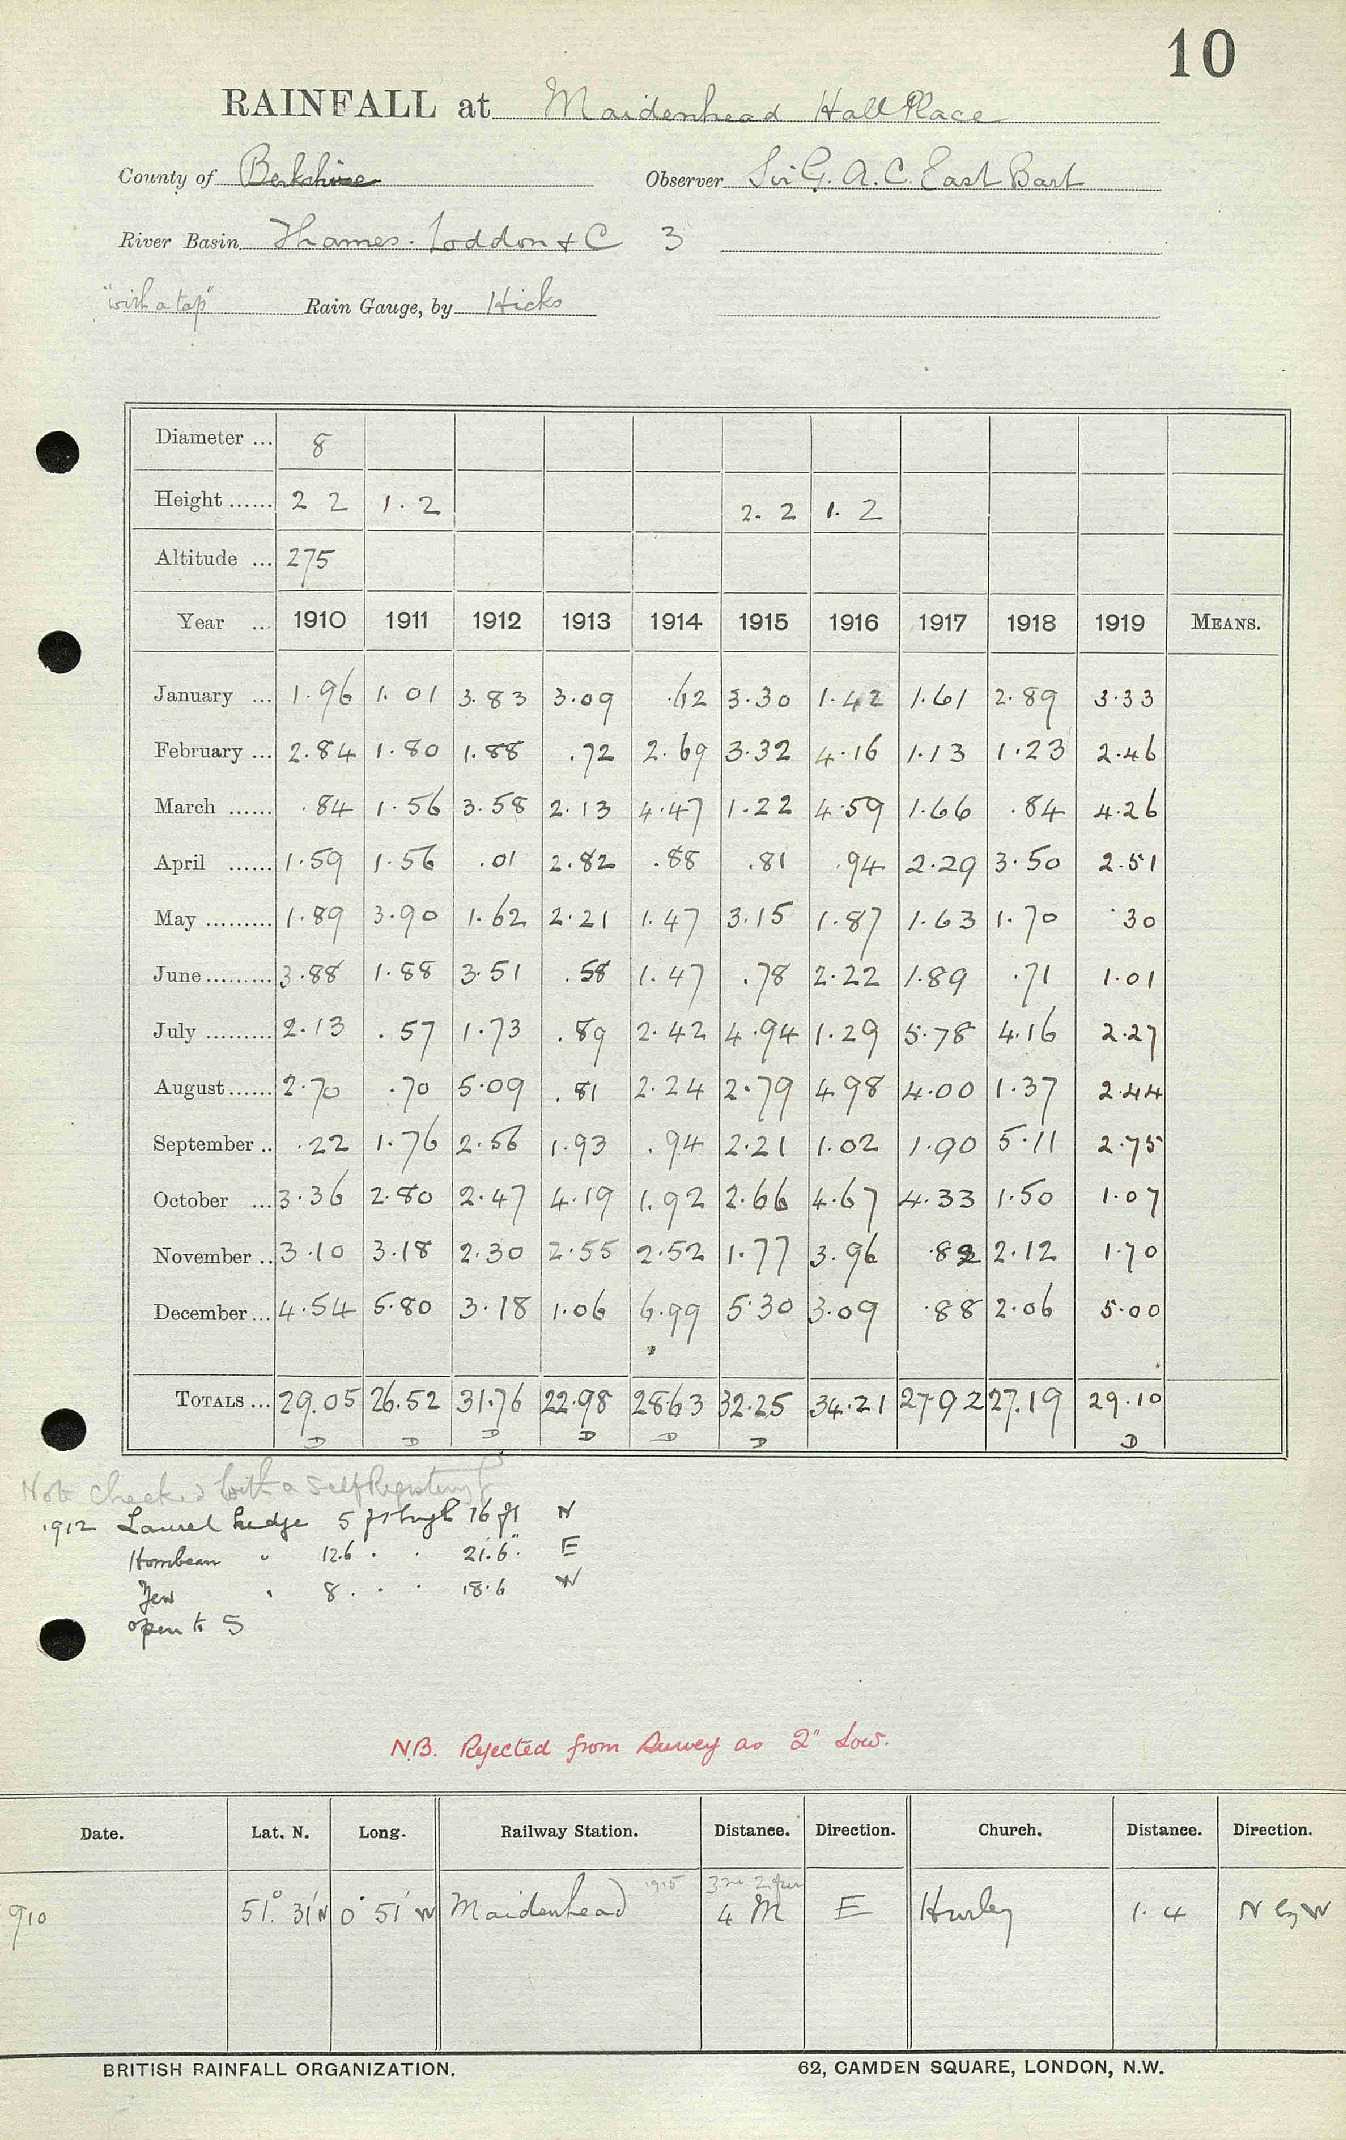 10
RAINFALL at Maidenhead Hall Place
County of Berkshire Observer Sir G. A. C. East Bart
River Basin Thames. Loddon & C 3
"with a tap" Rain Gauge, by Hicks
Diameter ... 8
Height ...... 2 2 1.2 2.2 1.2
Altitude ... 275
Year ... 1910 1911 1912 1913 1914 1915 1916 1917 1918 1919 MEANS.
January ... 1.96 1.01 3.83 3.09 .62 3.30 1.42 1.61 2.89 3.33
February ... 2.84 1.80 1.88 .72 2.69 3.32 4.16 1.13 1.23 2.46
March ...... .84 1.56 3.58 2.13 4.47 1.22 4.59 1.66 .84 4.26
April ...... 1.59 1.56 .01 2.82 .88 .81 .94 2.29 3.50 2.51
May ......... 1.89 3.90 1.62 2.21 1.47 3.15 1.87 1.63 1.70 .30
June ......... 3.88 1.88 3.51 .58 1.47 .78 2.22 1.89 .71 1.01
July ......... 2.13 .57 1.73 .89 2.42 4.94 1.29 5.78 4.16 2.27
August ...... 2.70 .70 5.09 .81 2.24 2.79 4.98 4.00 1.37 2.44
September .. .22 1.76 2.56 1.93 .94 2.21 1.02 1.90 5.11 2.75
October ... 3.36 2.80 2.47 4.19 1.92 2.66 4.67 4.33 1.50 1.07
November .. 3.10 3.18 2.30 2.55 2.52 1.77 3.96 .82 2.12 1.70
December ... 4.54 5.80 3.18 1.06 6.99 5.30 3.09 .88 2.06 5.00
TOTALS ... 29.05 26.52 31.76 22.98 28.63 32.25 34.21 27.92 27.19 29.10
D D D D D D D
Note checked with a Self Registering
1912 Laurel hedge 5 ft high 16 ft N
Hornbeam " 12.6 . . 21.6". E
Yew " 8 . . . 18.6 W
open to S
N.B. Rejected from Survey as 2" Low.
Date. Lat. N. Long. Railway Station. Distance. Direction. Church. Distance. Direction.
1915 3m 2fur
910 51° 31' N 0° 51' W Maidenhead 4 M E Hurley 1.4 N by W
BRITISH RAINFALL ORGANIZATION. 62, CAMDEN SQUARE, LONDON, N.W.